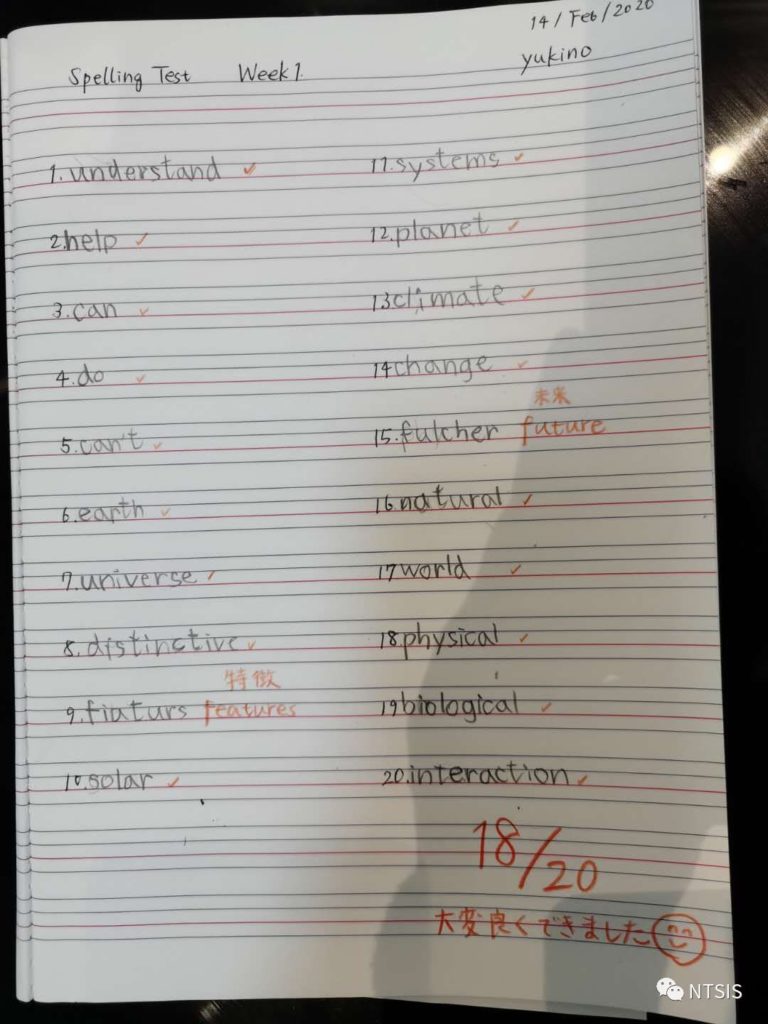 14/Feb/2020
Spelling Test Week 1.
yukino
1. understand ✓
2. help ✓
3. can ✓
4. do ✓
5. can't ✓
6. earth ✓
7. universe ✓
8. distinctive ✓
特徴
9. fiaturs features
10. solar ✓
11. systems ✓
12. planet ✓
13 climate ✓
14 change ✓
未来
15. fulcher future
16. natural ✓
17 world ✓
18 physical ✓
19 biological ✓
20. interaction ✓
18/20
大変良くできました
NTSIS